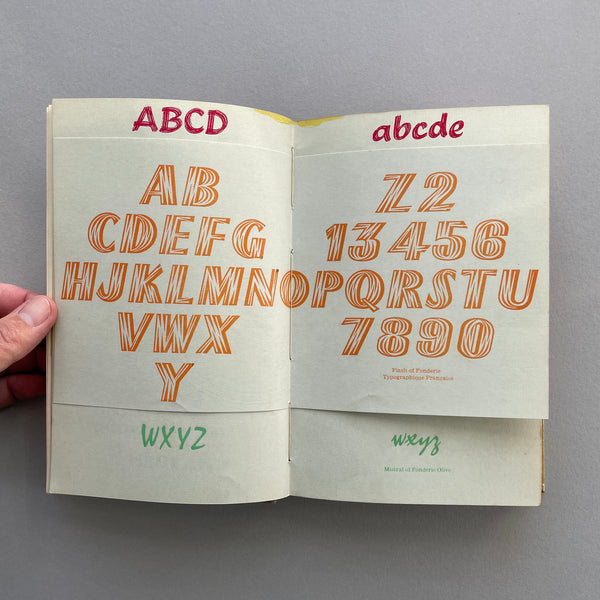 ABCD
abcde
AB
CDEFG
HJKLMNOPQRSTU
VWX
Y
Z2
13456
7890
Flash of Fonderie
Typographique Française
WXYZ
wxyz
Mistral of Fonderie Olive